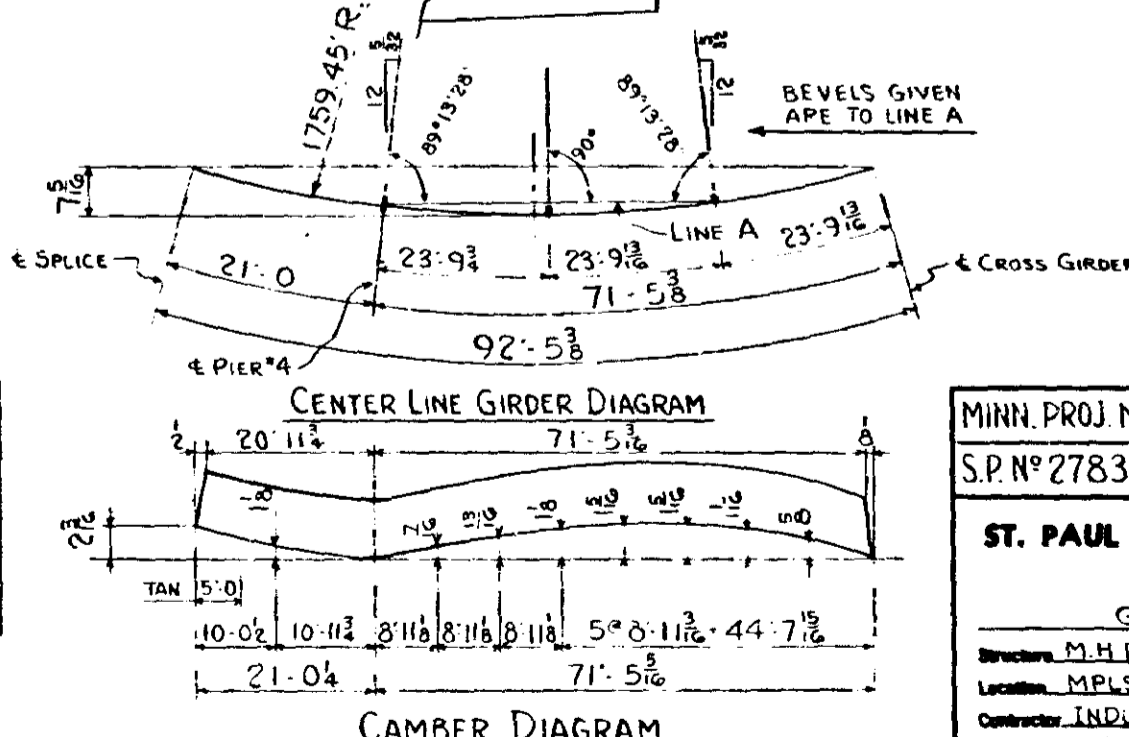 1759.45' R.
5/32
12
89°13'28"
90°
89°13'28"
5/32
12
BEVELS GIVEN
APE TO LINE A
7 5/16
LINE A
℄ SPLICE
21'-0
23'-9 3/4
23'-9 13/16
23'-9 13/16
℄ CROSS GIRDER
71'-5 3/8
92'-5 3/8
℄ PIER #4
CENTER LINE GIRDER DIAGRAM
1/2
20'-11 3/4
71'-5 3/16
1/8
2 3/16
7/16
13/16
5/8
TAN 5'-0
10-0 1/2
10-11 3/4
8'-11 1/8
8'-11 1/8
8'-11 1/8
5@8'-11 3/16 = 44'-7 15/16
21'-0 1/4
71'-5 5/16
CAMBER DIAGRAM
MINN. PROJ. N
S.P. Nº 2783
ST. PAUL
Structure M.H.
Location MPLS
Contractor INDU